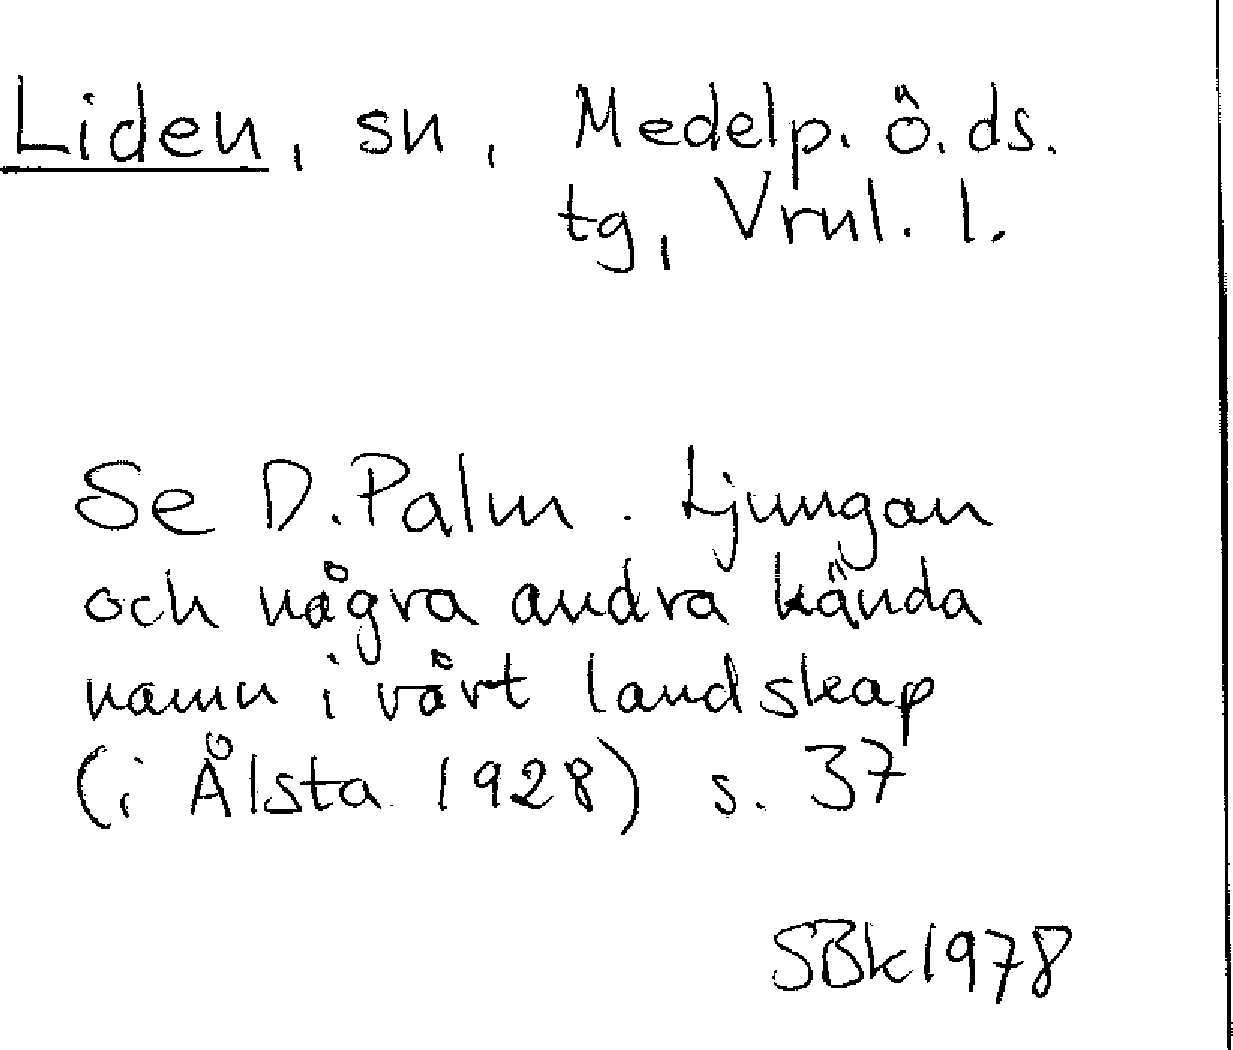 Liden, sn, Medelp. ö. ds.
tg, Vrnl. l.
Se D. Palm. Ljungan
och några andra kända
namn i vårt landskap
(i Ålsta 1928) s. 37
SBk 1978